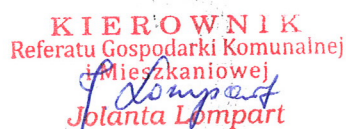 KIEROWNIK
Referatu Gospodarki Komunalnej
i Mieszkaniowej
J. Lompart
Jolanta Lompart